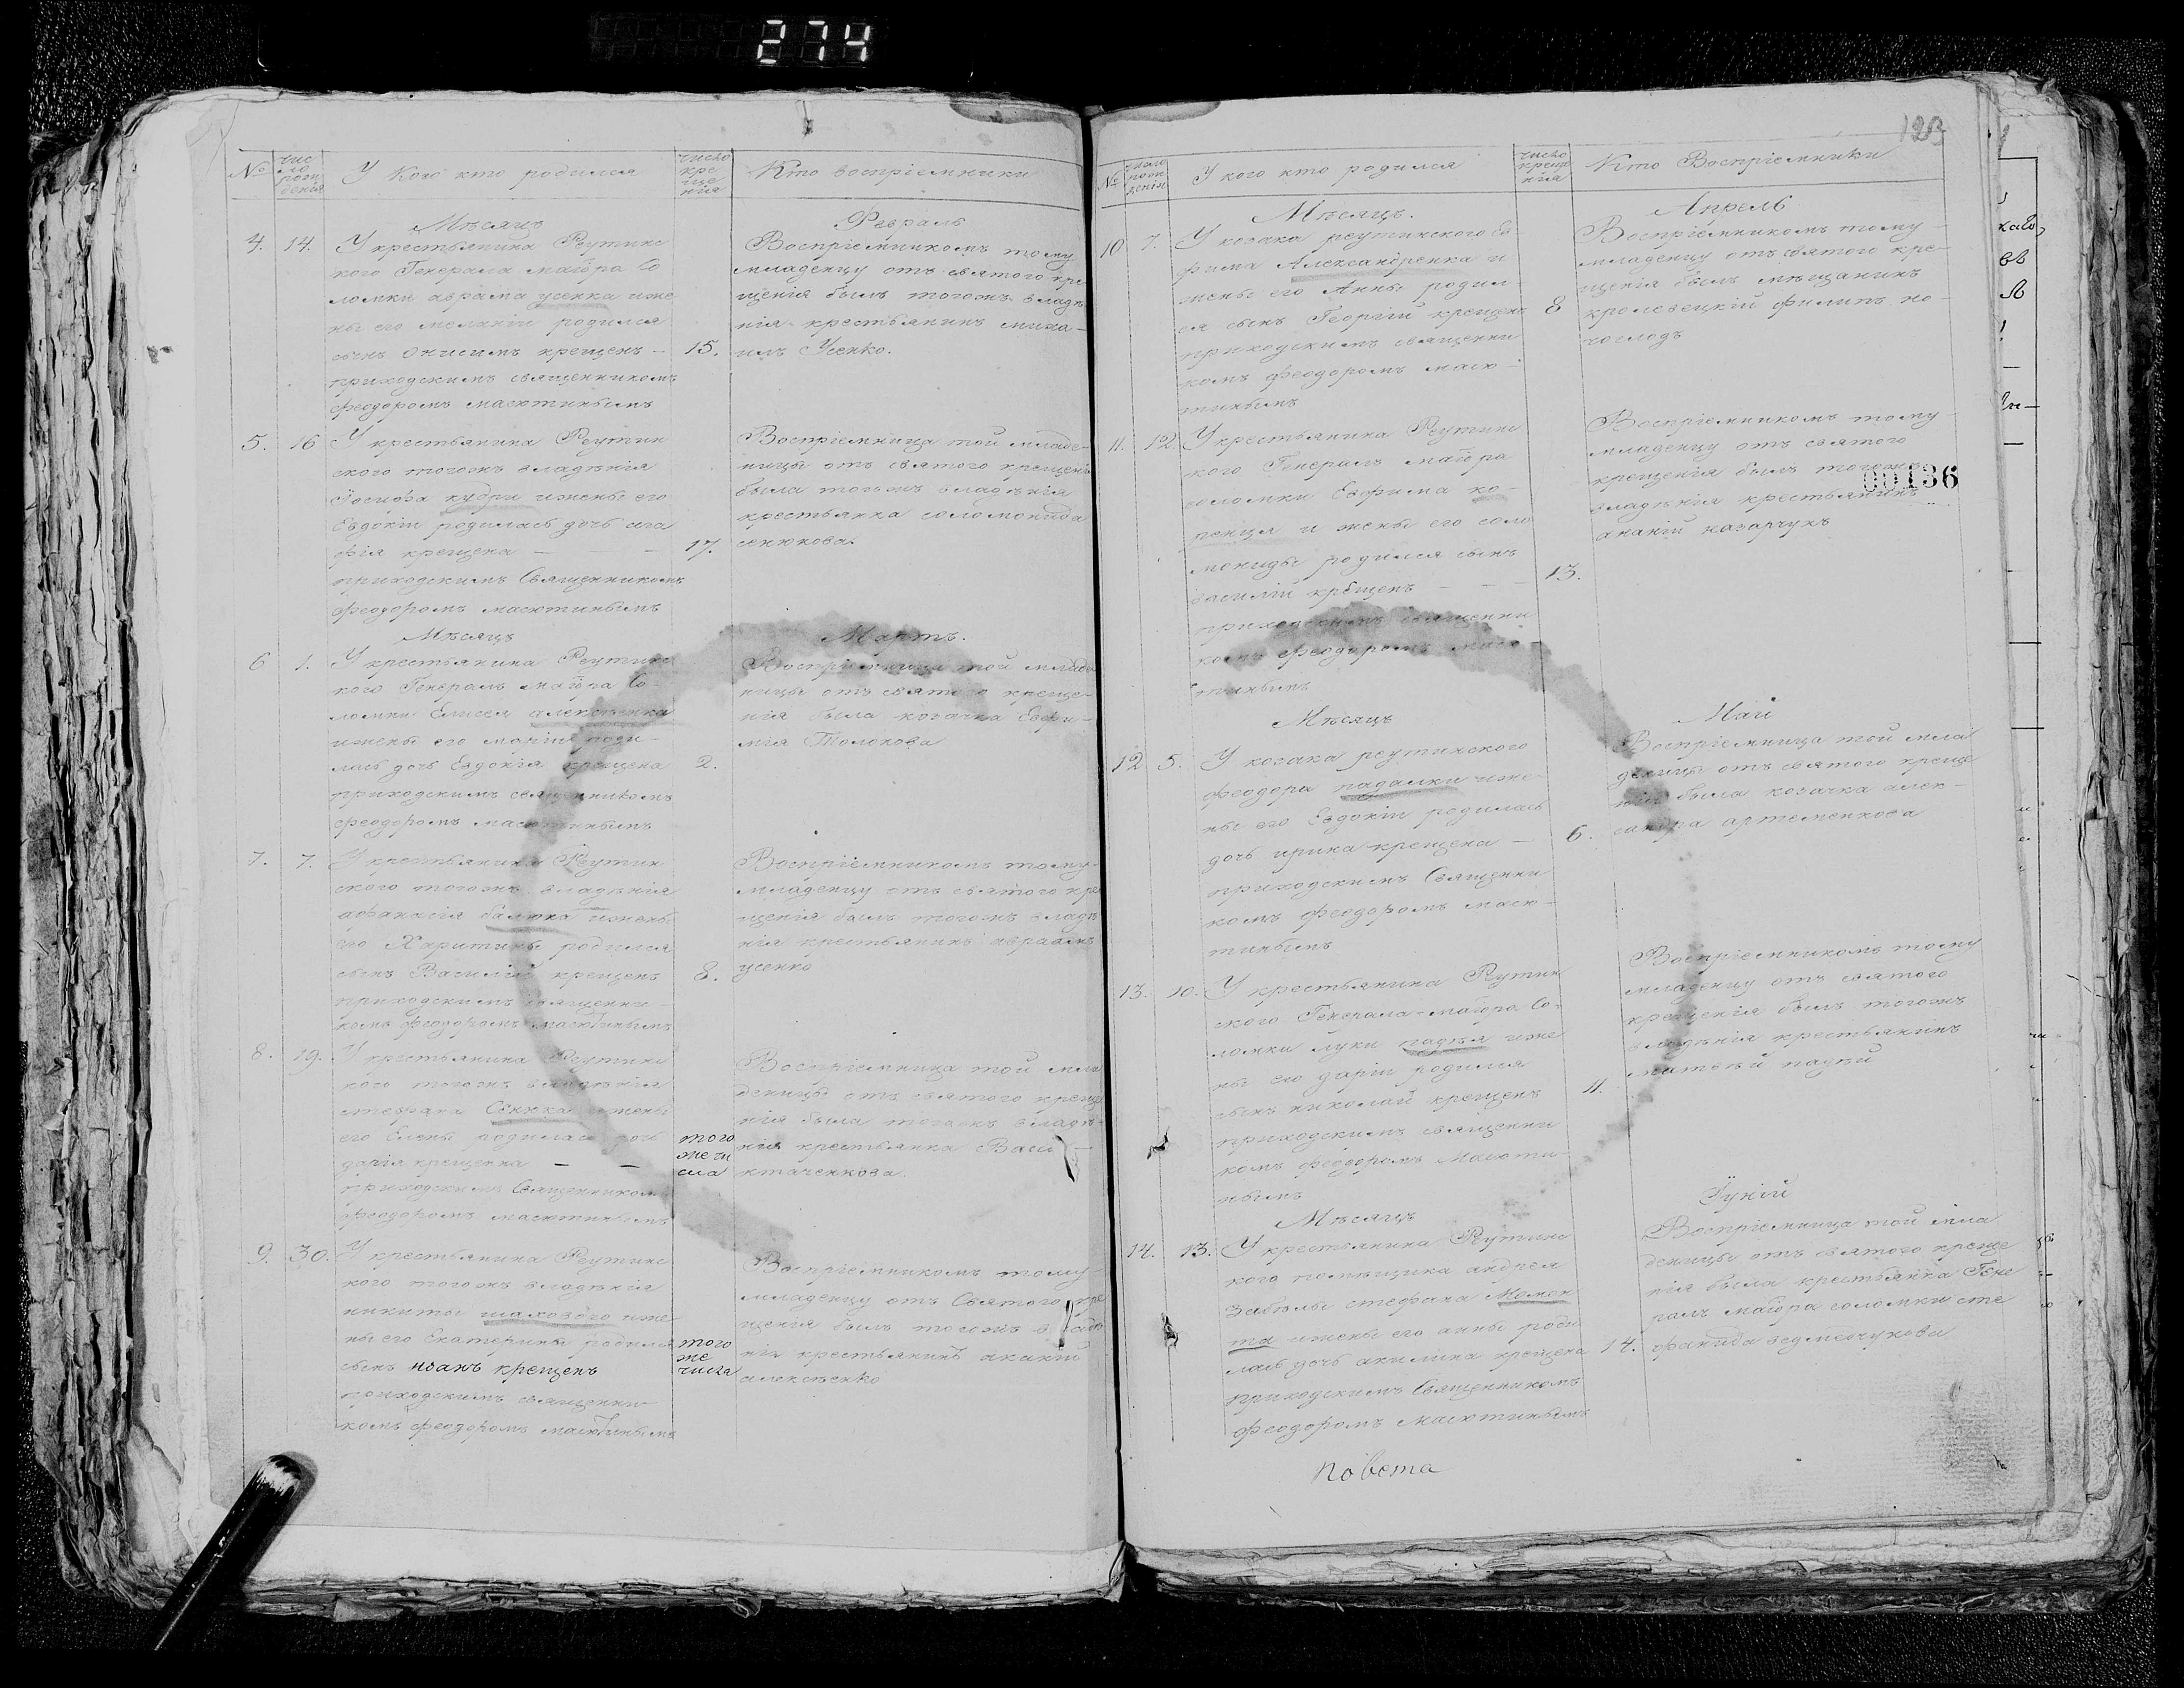 274
№
чис
ло
рож
денія
У кого кто родился
число
кре
ще
нія
Кто воспріемники
Мѣсяцъ
Февраль
4. 14.
У крестьянина Реутинс
кого Генерала маіора Со
ломки аврама усенка иже
ны его меланіи родился
сынъ Онисимъ крещенъ –
приходскимъ священникомъ
феодоромъ масютинымъ
15.
Воспріемникомъ тому
младенцу отъ святого кре
щенія былъ тогожъ владѣ
нія крестьянинъ миха–
илъ Усенко.
5. 16
У крестьянина Реутин
ского тогожъ владѣнія
Іосифа кудри ижены его
Евдокіи родилась дочь ага
фія крещена –
приходскимъ Священникомъ
феодоромъ масютинымъ
17.
Воспріемница той младе–
ницы отъ святого крещенія
была тогожъ владѣнія
крестьянка соломонида
сенюкова.
Мѣсяцъ
Мартъ.
6 1.
У крестьянина Реутинс
кого Генералъ маіора Со–
ломки Елисея алексѣенка
ижены его маріи роди–
лась дочь Евдокія крещена
приходскимъ священникомъ
феодоромъ масютинымъ
2.
Воспріемница той младе
ницы отъ святого креще–
нія была козачка Евфи–
мія Толокова
7. 7.
У крестьянина Реутин
ского тогожъ владѣнія
афанасія балюка ижены
его Харитины родился
сынъ Василій крещенъ
приходскимъ священни–
комъ феодоромъ масютинымъ
8.
Воспріемникомъ тому
младенцу отъ святого кре
щенія былъ тогожъ владѣ
нія крестьянинъ авраамъ
усенко
8. 19.
У крестьянина Реутинс
кого тогожъ владѣнія
стефана Сенюка ижены
его Елены родилась дочь
дарія крещенна – –
приходскимъ Священникомъ
феодоромъ масютинымъ
того
же чи
сла
Воспріемница той мла
деницы отъ святого креще
нія была тогожъ владѣ–
нія крестьянка Васи–
ткаченкова.
9. 30.
У крестьянина Реутинс
кого тогожъ владѣнія
никиты шахового иже
ны его Екатерины родился
сынъ иванъ крещенъ
приходскимъ священни–
комъ феодоромъ масютинымъ
того
же
числа
Воспріемникомъ тому
младенцу отъ Святого кре
щенія былъ тогожъ владѣ
нія крестьянинъ акакій
алексѣенко
123
№
число
рож
денія
У кого кто родился
число
крещ
нія
Кто Воспріемники
Мѣсяцъ.
Апрель
10 7.
У козака реутинского Ев
фима Александренка и
жены его Анны родил–
ся сынъ Георгій крещенъ
приходскимъ священни
комъ феодоромъ масю–
тинымъ
8
Воспріемникомъ тому
младенцу отъ святого кре–
щенія былъ мѣщанинъ
кролевецкій филипъ но–
чоглодъ
11. 12.
У крестьянина Реутинс
кого Генералъ маіора
соломки Евфима ко–
ренця и жены его соло
мониды родился сынъ
василій крещенъ – –
приходскимъ священни
комъ феодоромъ масю–
тинымъ
13.
Воспріемникомъ тому
младенцу отъ святого
крещенія былъ тогожъ
владѣнія крестьянинъ
ананій казарчукъ
00136
Мѣсяцъ
Май
12 5.
У козака реутинского
феодора падалки иже
ны его Евдокіи родилась
дочь ирина крещена –
приходскимъ Священни
комъ феодоромъ масю–
тинымъ
6.
Воспріемница той мла
деницы отъ святого креще
нія была козачка алек–
сандра артеменкова
13. 10.
У крестьянина Реутин
ского Генерала–маіора Со–
ломки луки падѣя иже
ны его даріи родился
сынъ николай крещенъ
приходскимъ священни
комъ феодоромъ Масюти–
нымъ
11.
Воспріемникомъ тому
младенцу отъ святого
крещенія былъ тогожъ
владѣнія крестьянинъ
матвѣй падѣй
Мѣсяцъ
Іуній
14. 13.
У крестьянина Реутинс
кого помѣщика андрея
Забѣлы стефана Момон
та ижены его анны роди
лась дочь акилина крещена
приходскимъ Священникомъ
феодоромъ Масютинымъ
14.
Воспріемница той мла
деницы отъ святого креще
нія была крестьянка Гене
ралъ маіора соломки сте
фанида ведмедчукова
повета